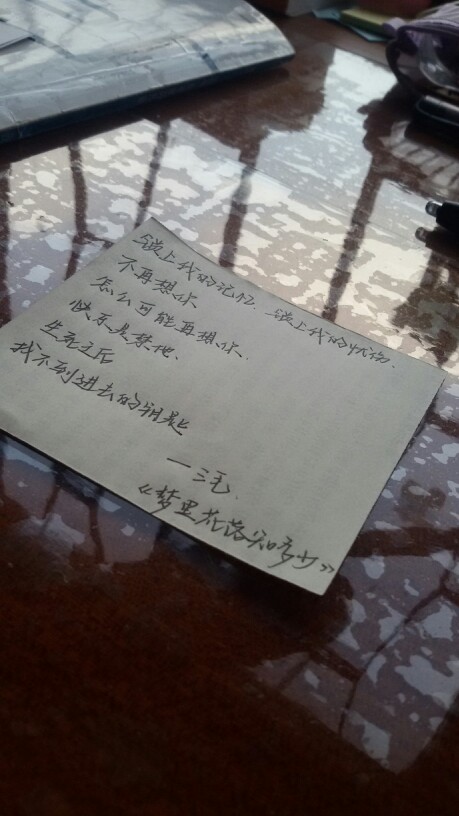 锁上我的记忆、锁上我的忧伤、
不再想你
怎么可能再想你、
快乐是禁地、
生死之后
找不到进去的钥匙
—三毛、
《梦里花落知多少》